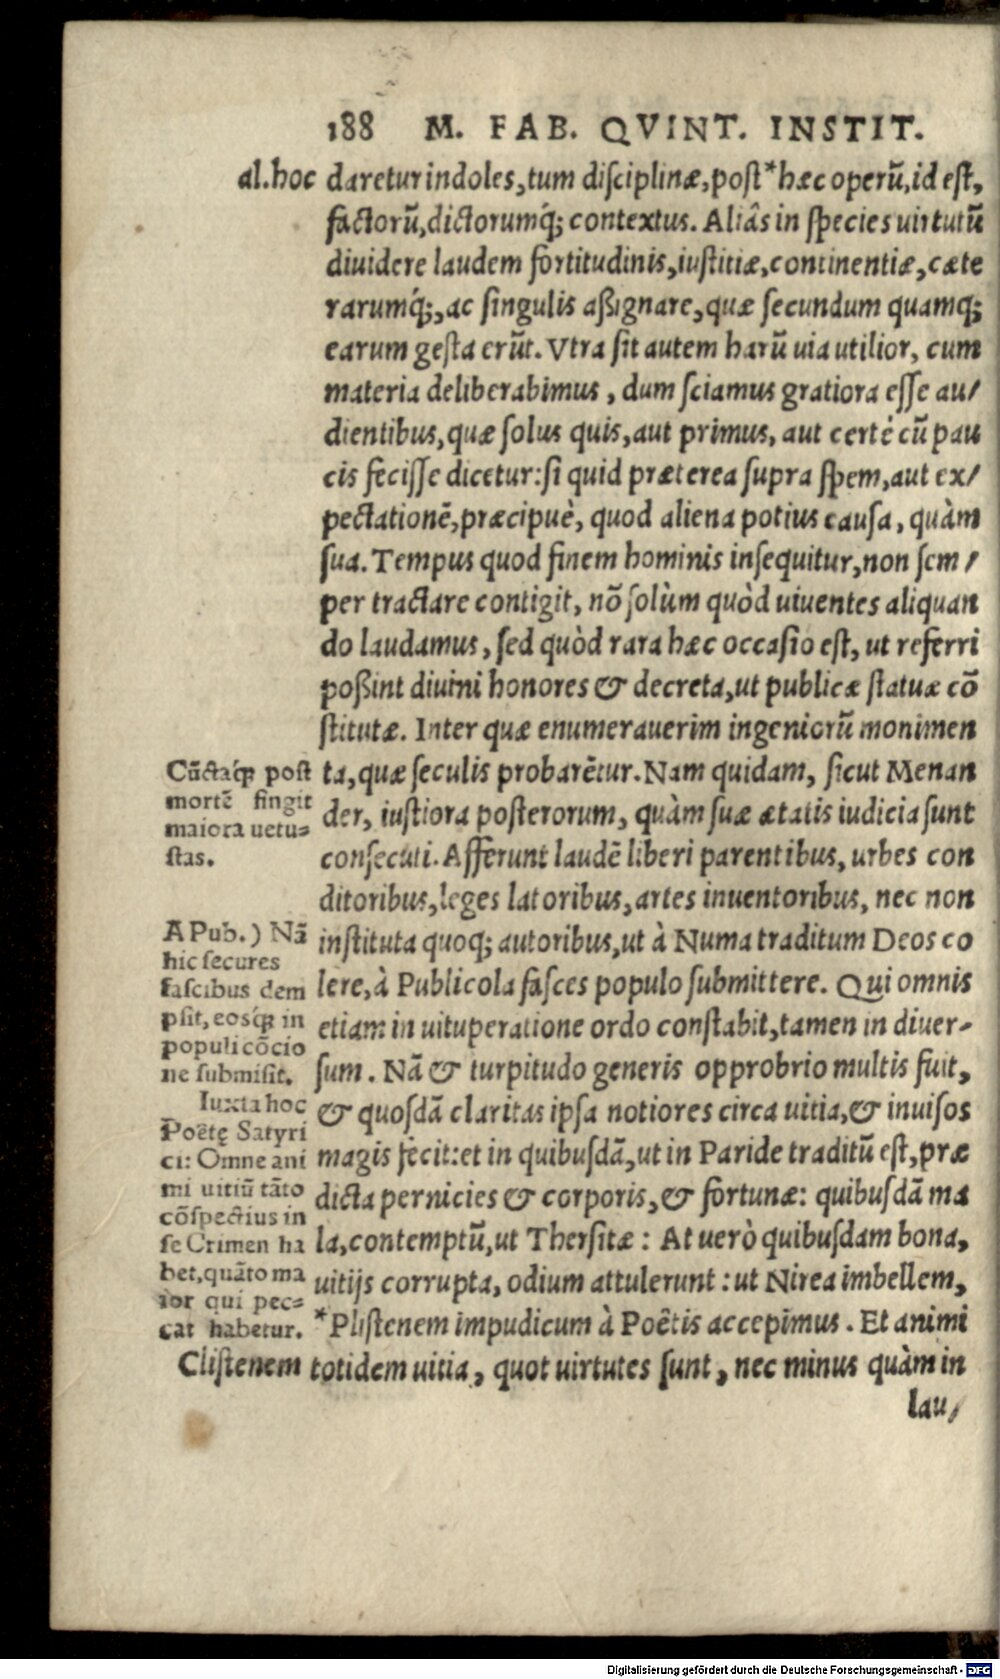 188 M. FAB. QVINT. INSTIT.
al. hoc
daretur indoles, tum disciplinæ, post *hæc operũ, id est,
factorũ, dictorumq́; contextus. Aliâs in species uirtutũ
diuidere laudem fortitudinis, iustitiæ, continentiæ, cæte
rarumq́;, ac singulis aßignare, quæ secundum quamq;
earum gesta erũt. Vtra sit autem harũ uia utilior, cum
materia deliberabimus, dum sciamus gratiora esse au/
dientibus, quæ solus quis, aut primus, aut certè cũ pau
cis fecisse dicetur: si quid præterea supra spem, aut ex/
pectationẽ, præcipuè, quod aliena potius causa, quàm
sua. Tempus quod finem hominis insequitur, non sem/
per tractare contigit, nõ solùm quòd uiuentes aliquan
do laudamus, sed quòd rara hæc occasio est, ut referri
poßint diuini honores & decreta, ut publicæ statuæ cõ
stitutæ. Inter quæ enumerauerim ingeniorũ monimen
ta, quæ seculis probarẽtur. Nam quidam, sicut Menan
der, iustiora posterorum, quàm suæ ætatis iudicia sunt
consecuti. Afferunt laudẽ liberi parentibus, urbes con
ditoribus, leges latoribus, artes inuentoribus, nec non
instituta quoq; autoribus, ut à Numa traditum Deos co
lere, à Publicola fasces populo submittere. Qui omnis
etiam in uituperatione ordo constabit, tamen in diuer-
sum. Nã & turpitudo generis opprobrio multis fuit,
& quosdã claritas ipsa notiores circa uitia, & inuisos
magis fecit: et in quibusdã, ut in Paride traditũ est, præ
dicta pernicies & corporis, & fortunæ: quibusdã ma
la, contemptũ, ut Thersitæ: At uerò quibusdam bona,
uitijs corrupta, odium attulerunt: ut Nirea imbellem,
*Plistenem impudicum à Poëtis accepimus. Et animi
totidem uitia, quot uirtutes sunt, nec minus quàm in
lau/
Cũctaq́; post
mortẽ fingit
maiora uetu=
stas.
A Pub.) Nã
hic secures
fascibus dem
psit, eosq́; in
populi cõcio
ne submisit.
Iuxta hoc
Poëtę Satyri
ci: Omne ani
mi uitiũ tãto
cõspectius in
se Crimen ha
bet, quãto ma
ior qui pec=
cat habetur.
Clistenem
Digitalisierung gefördert durch die Deutsche Forschungsgemeinschaft - DFG